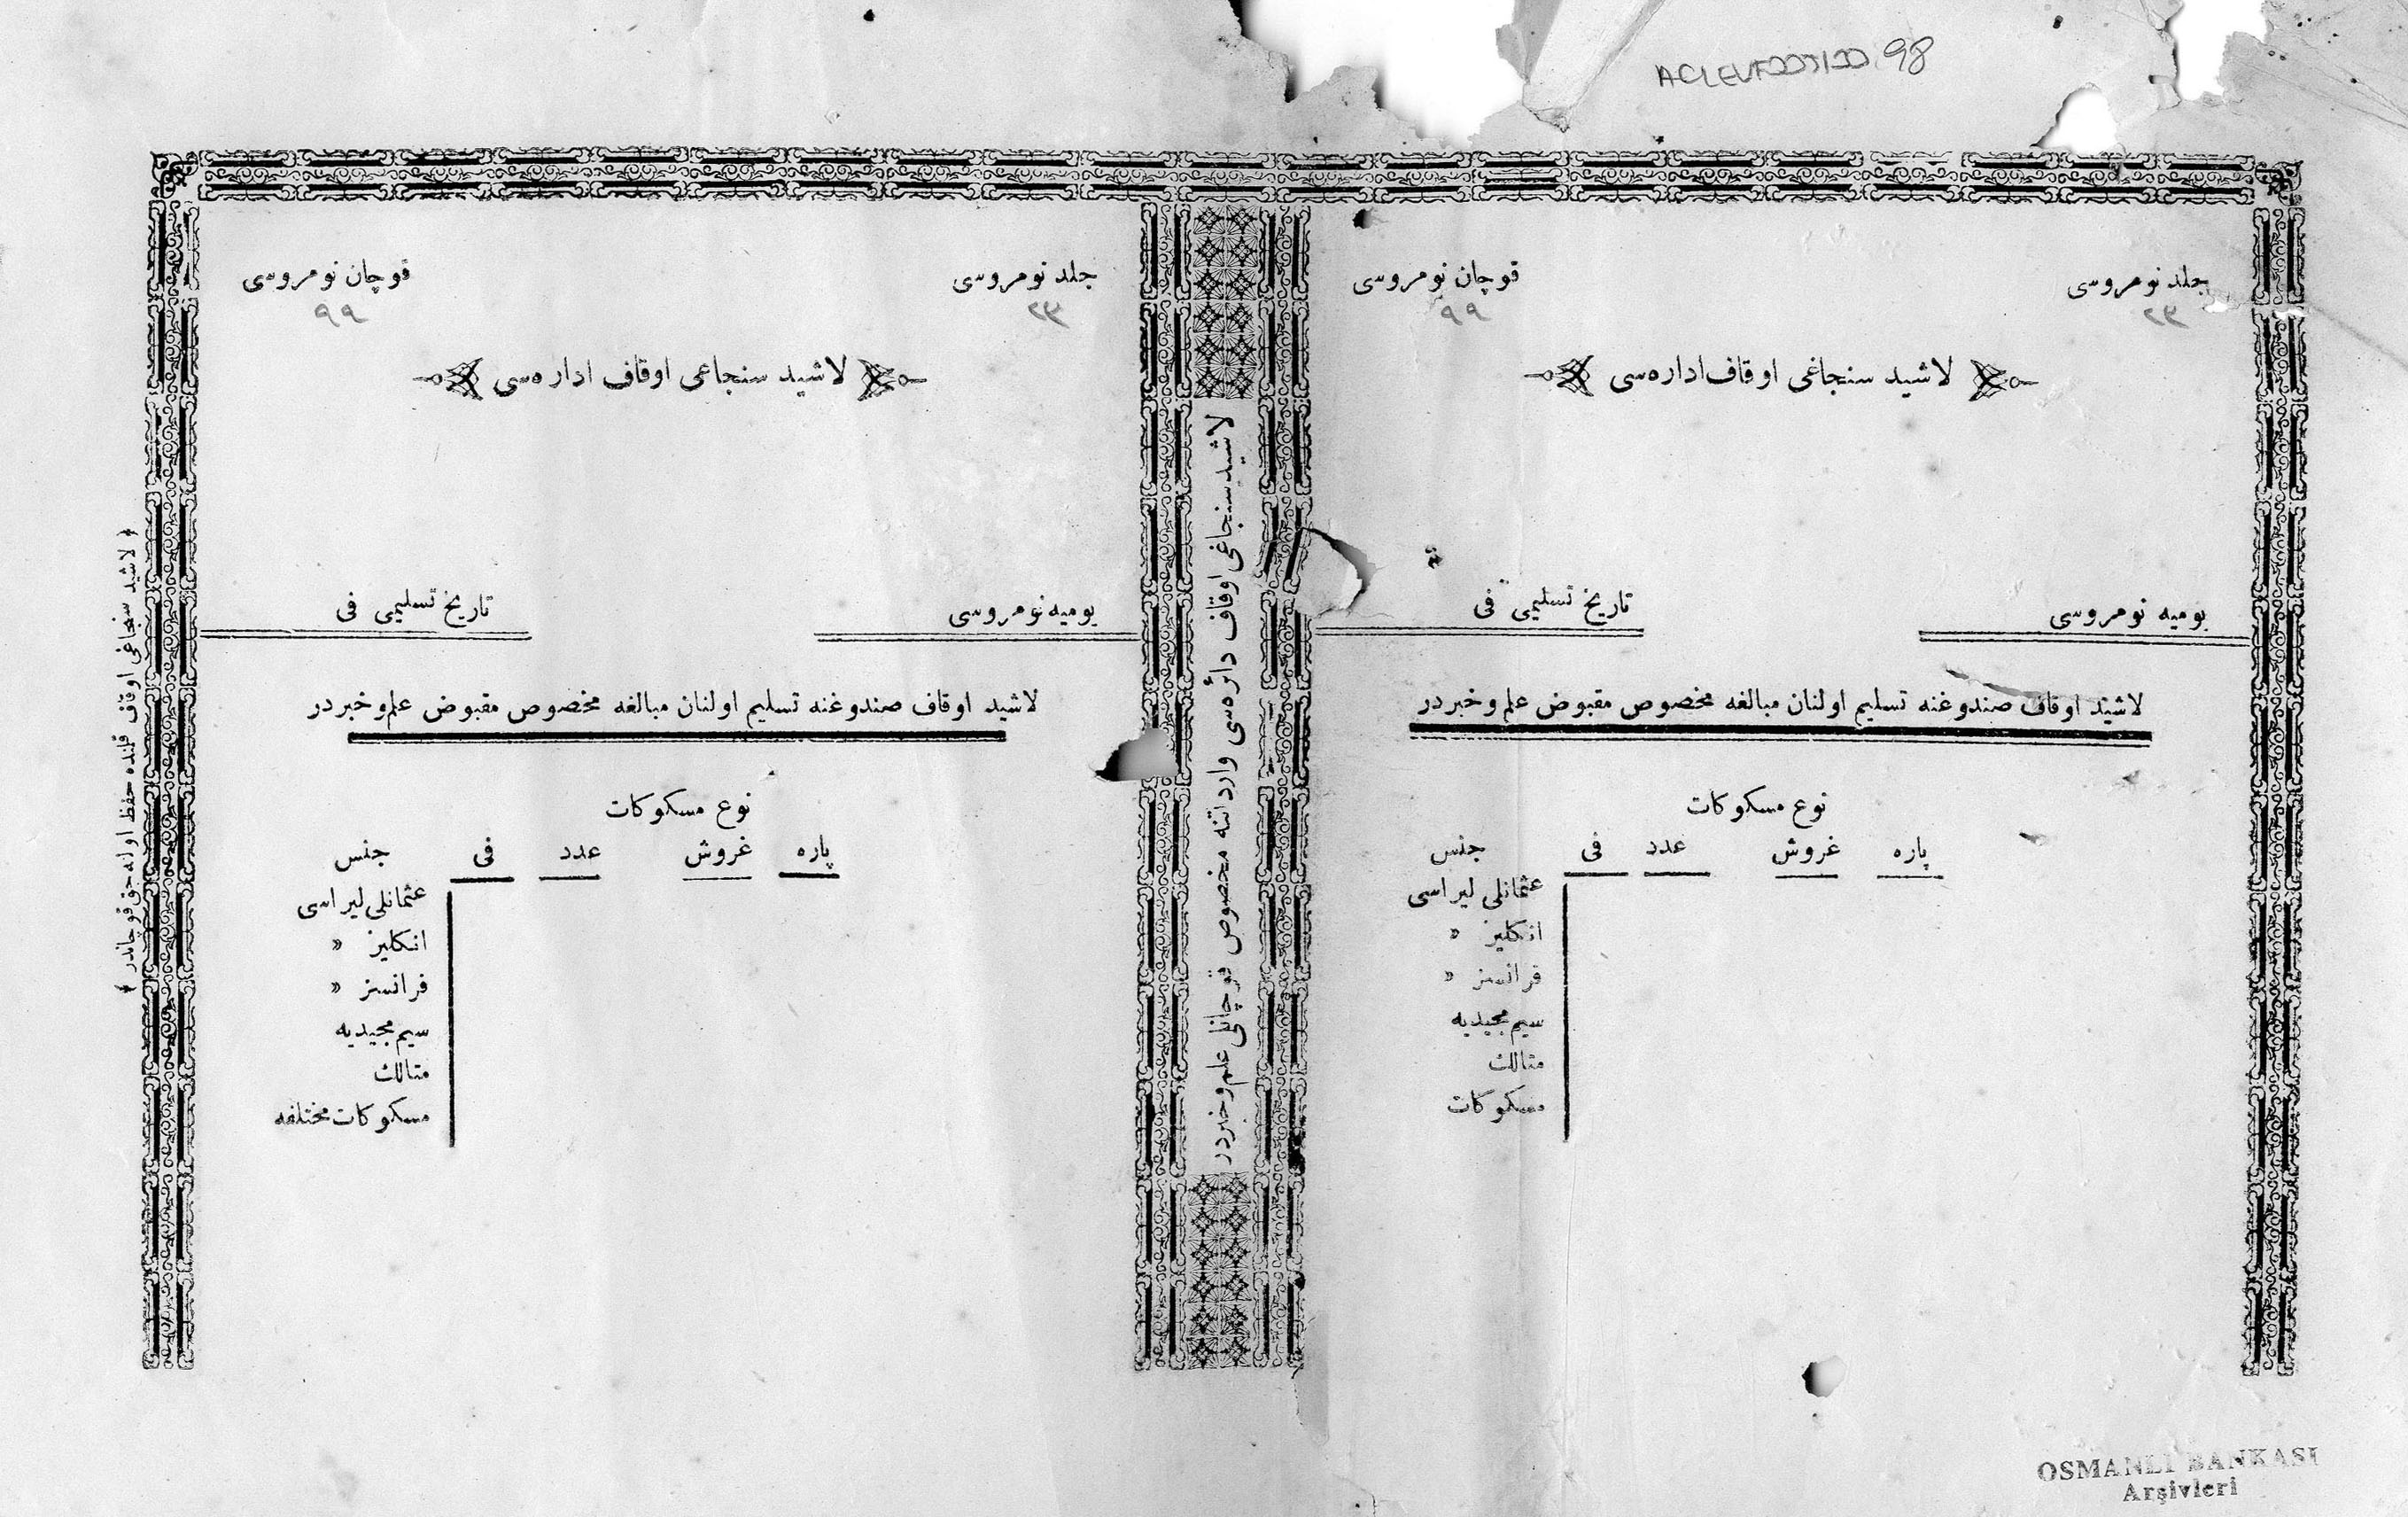 98
جلد نومروسی
۲۳
قوچان نومروسی
۹۹
لاشید سنجاغی اوقاف اداره‌سی
یومیه نومروسی
تاریخ تسلیمی فی
لاشید اوقاف صندوغنه تسلیم اولنان مبالغه مخصوص مقبوض علم و خبردر
نوع مسکوکات
پاره غروش عدد فی جنس
عثمانلی لیراسی
انکلیز »
فرانسز »
سیم مجیدیه
متالك
مسکوکات
لاشید سنجاغی اوقاف دائره‌سی وارداتنه مخصوص قوچانلی علم و خبردر
جلد نومروسی
۲۳
قوچان نومروسی
۹۹
لاشید سنجاغی اوقاف اداره‌سی
یومیه نومروسی
تاریخ تسلیمی فی
لاشید اوقاف صندوغنه تسلیم اولنان مبالغه مخصوص مقبوض علم و خبردر
نوع مسکوکات
پاره غروش عدد فی جنس
عثمانلی لیراسی
انکلیز »
فرانسز »
سیم مجیدیه
متالك
مسکوکات مختلفه
﴿ لاشید سنجاغی اوقاف قلنده حفظ اوله‌جق قوچاندر ﴾
OSMANLI BANKASI
Arşivleri